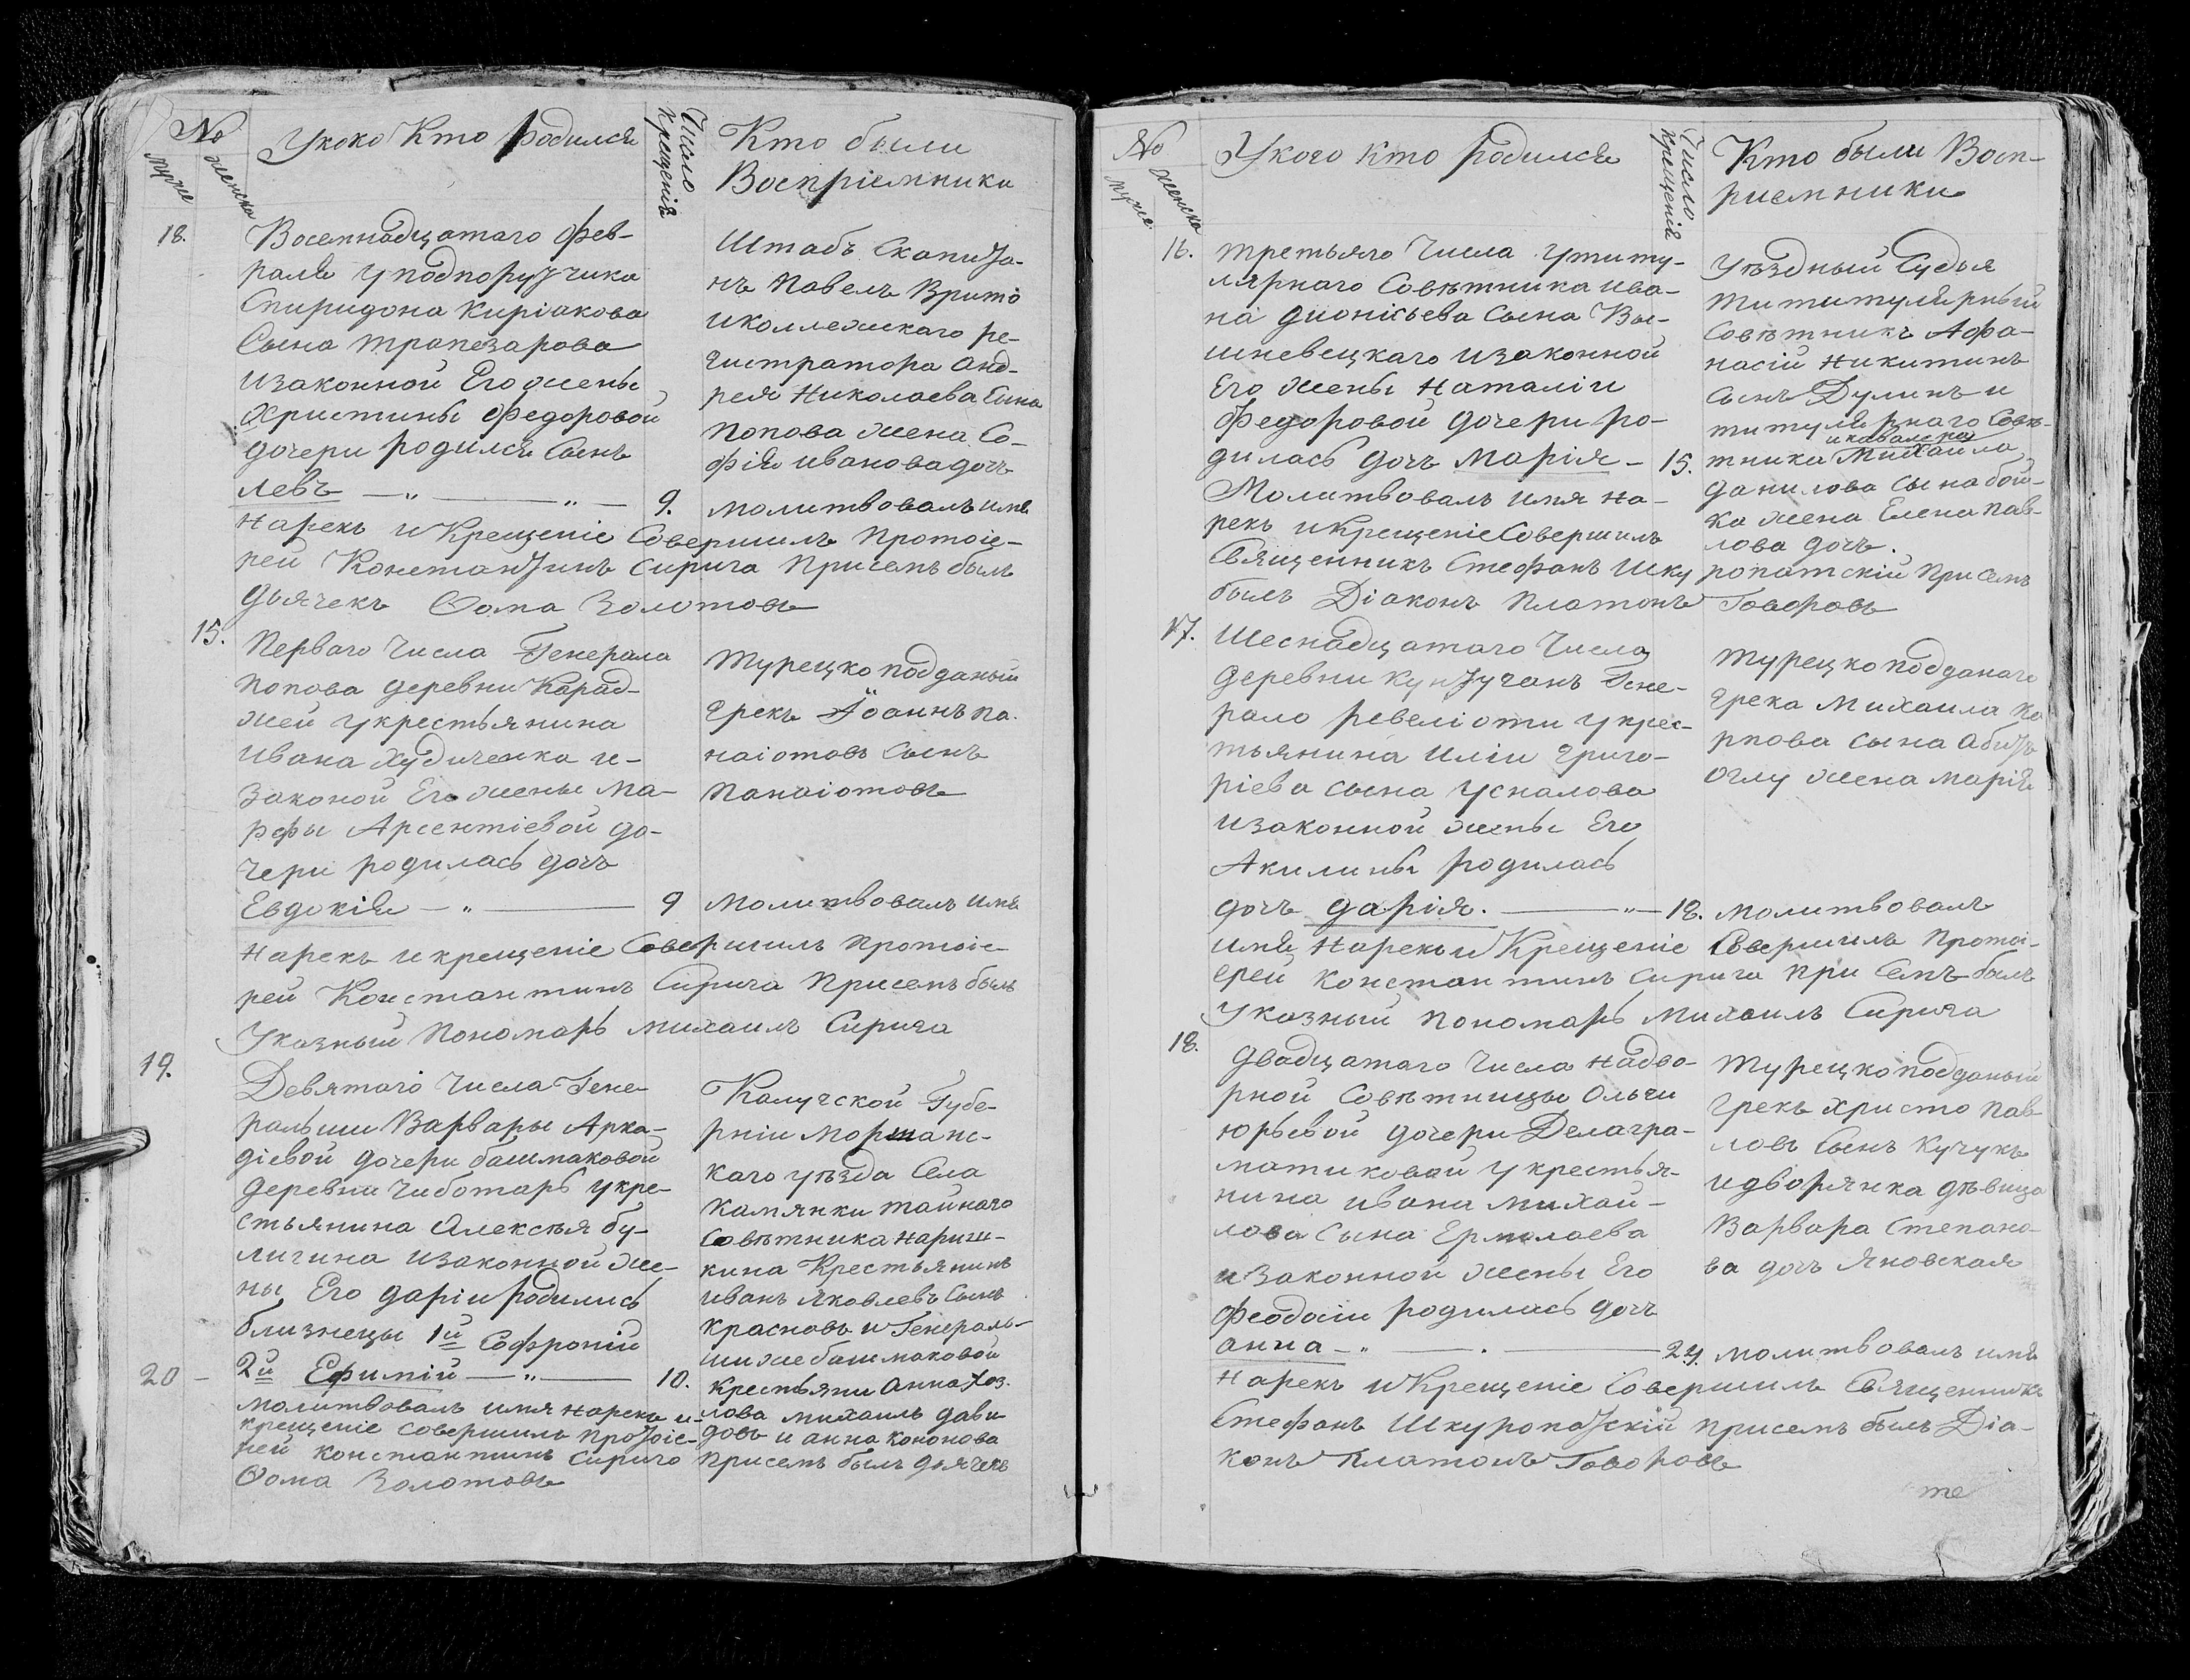 №
мужие
женска
Укоко Кто родился
Число
крещенія
Кто были
Воспріемники
18.
Восемнадцатаго фев-
раля уподпоручика
Спиридона Киріакова
Сына Трапезарова
изаконной Его жены
Христины Федоровой
дочери родился Сынъ
Левъ — „ — „ — 9.
Штабъ Скапита-
нъ Павелъ
иколлежскаго ре-
гистратора Анд-
рея Николаева Сына
Попова жена Со-
фія Иванова дочь
молитвовалъ имя
Нарекъ и Крещеніе Совершилъ Протоіе-
рей Константинъ Сирига Присемъ былъ
дьячекъ Ѳома Золотовъ
15.
Перваго Числа Генерала
Попова деревни Карад-
жей укрестьянина
Ивана Худиченка и-
законой Его жены Ма-
рфы Арсентіевой до-
чери родилась дочь
Евдокія — „ — 9
Турецко подданый
грекъ Іоаннъ Па-
наіотовъ Сынъ
Панаіотовъ
молитвовалъ имя
Нарекъ и крещеніе Совершилъ Протоіе-
рей Константинъ Сирига Присемъ былъ
Указный Пономарь Михаилъ Сирига
19.
Девятаго Числа Гене-
ральши Варвары Арка-
діевой дочери башмаковой
деревни Чиботарь укре-
стьянина Алексѣя бу-
лигина изаконной же-
ны Его даріи родились
близнецы 1й Софроній
20 — 2й Ефимій — „ — 10.
Калужской Губе-
рніи Моршанс-
каго уѣзда Села
Камянки тайнаго
Совѣтника Нариш-
кина Крестьянинъ
иванъ Яковлевъ Сынъ
Красновъ и Генераль-
ши же башмаковой
крестьяни Анна Коз-
молитвовалъ имя нарекъ и- лова михаилъ дави-
крещеніе совершилъ протоіе- довъ и анна кононова
рей константинъ Сирига присемъ былъ дьячекъ
Ѳома Золотовъ
№
мужие
женска
Укого кто родился
Число
крещенія
Кто были Восп-
риемники
16.
третьяго Числа утиту-
лярнаго Совѣтника Ива-
на Дионисьева Сына Вы-
шневецкаго изаконной
Его жены Наталіи
Федоровой дочери ро-
дилась дочь Марія — 15.
Уѣздный Судья
Тититулярный
Совѣтникъ Афа-
насій Никитинъ
Сынъ Дулинъ и
титулярнаго Совѣ-
и кавалера
тника Михаила
данилова сына бой-
ка жена Елена Пав-
лова дочь.
Молитвовалъ имя На-
рекъ и Крещеніе Совершилъ
Священникъ Стефанъ Шкуропатскій При Семъ
былъ Діаконъ Платонъ Говоровъ
17.
Шеснадцатаго Числа
деревни Кунтуганъ Гене-
рало ревеліоти укрес-
тьянина Иліи Григо-
ріева сына Успалова
изаконной жены Его
Акилины родилась
дочь дарія. — „ — 18.
Турецко подданаго
грека Михаила Ка
рпова сына Абитъ
оглу жена Марія
молитвовалъ
имя Нарекъ и Крещеніе Совершилъ Протоі-
ерей Константинъ Сирига при Семъ былъ
Указный Пономарь Михаилъ Сирига
18.
Двадцатаго Числа Надво-
рной Совѣтницы Ольги
Юрьевой дочери Делагра-
матиковой укрестья-
нина Ивана Михай-
лова Сына Ермолаева
и Законной жены Его
Феодосіи родилась дочь
анна — „ — . — 24.
Турецко подданый
Грекъ Христо Пав-
ловъ Сынъ Кучукъ
идворянка дѣвица
Варвара Степано-
ва дочь Яновская
молитвовалъ имя
Нарекъ и Крещеніе Совершилъ Священникъ
Стефанъ Шкуропатскій присемъ былъ Діа-
конъ Платонъ Говоровъ
те